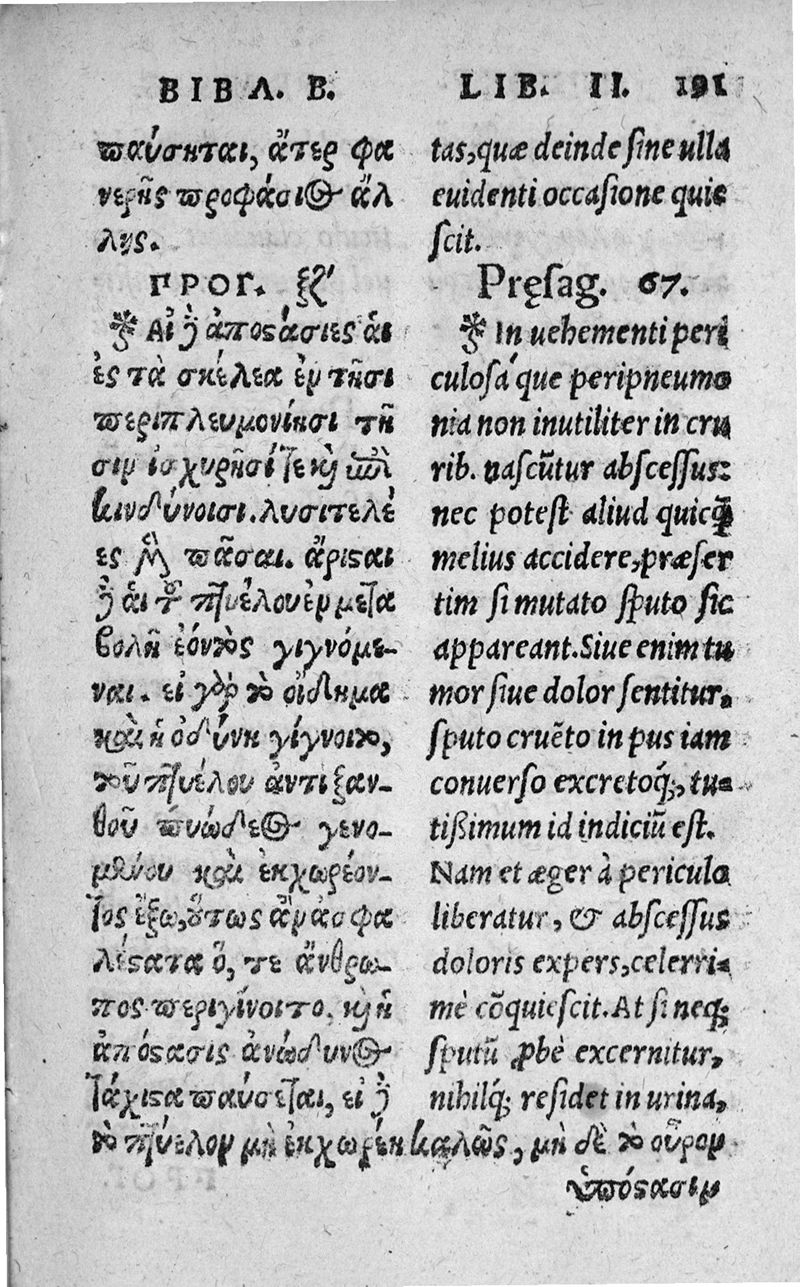 ΒΙΒΛ. Β.
παύσηται, ἄτερ φα
νερῆς προφάσιος ἄλ
λης.
ΠΡΟΓ. ξζʹ
Αἱ δὲ ἀποστάσιες αἱ
ἐς τὰ σκέλεα ἐν τῇσι
περιπλευμονίῃσι τῇ
σιν ἰσχυρῇσί τε καὶ ἐπι
κινδύνοισι. λυσιτελέ
ες μὲν πᾶσαι. ἄρισται
δὲ αἱ τοῦ πτυέλου ἐν μετα
βολῇ ἐόντος γιγνόμε-
ναι. εἰ γὰρ τὸ οἴδημα
καὶ ἡ ὀδύνη γίγνοιτο,
τοῦ πτυέλου ἀντὶ ξαν-
θοῦ πυώδεος γενο-
μένου καὶ ἐκχωρέον-
τος ἔξω, οὕτως ἂν ἀσφα
λέστατα ὅ, τε ἄνθρω-
πος περιγίνοιτο. καὶ ἡ
ἀπόστασις ἀνώδυνος
τάχιστα παύσεται, εἰ δὲ
τὸ πτύελον μὴ ἐκχωρέῃ καλῶς, μὴ δὲ τὸ οὖρον
ὑπόστασιν
LIB. II. 191
tas, quæ deinde sine ulla
euidenti occasione quie
scit.
Pręsag. 67.
In uehementi peri
culosáque peripneumo
nia non inutiliter in cru
rib. nascūtur abscessus:
nec potest aliud quicq̃
melius accidere, præser
tim si mutato sputo sic
appareant. Siue enim tu
mor siue dolor sentitur,
sputo cruēto in pus iam
conuerso excretoq́;, tu-
tißimum id indiciū est.
Nam et æger à periculo
liberatur, & abscessus
doloris expers, celerri-
mè cōquiescit. At si neq;
sputū ꝓbè excernitur,
nihilq́; residet in urina,